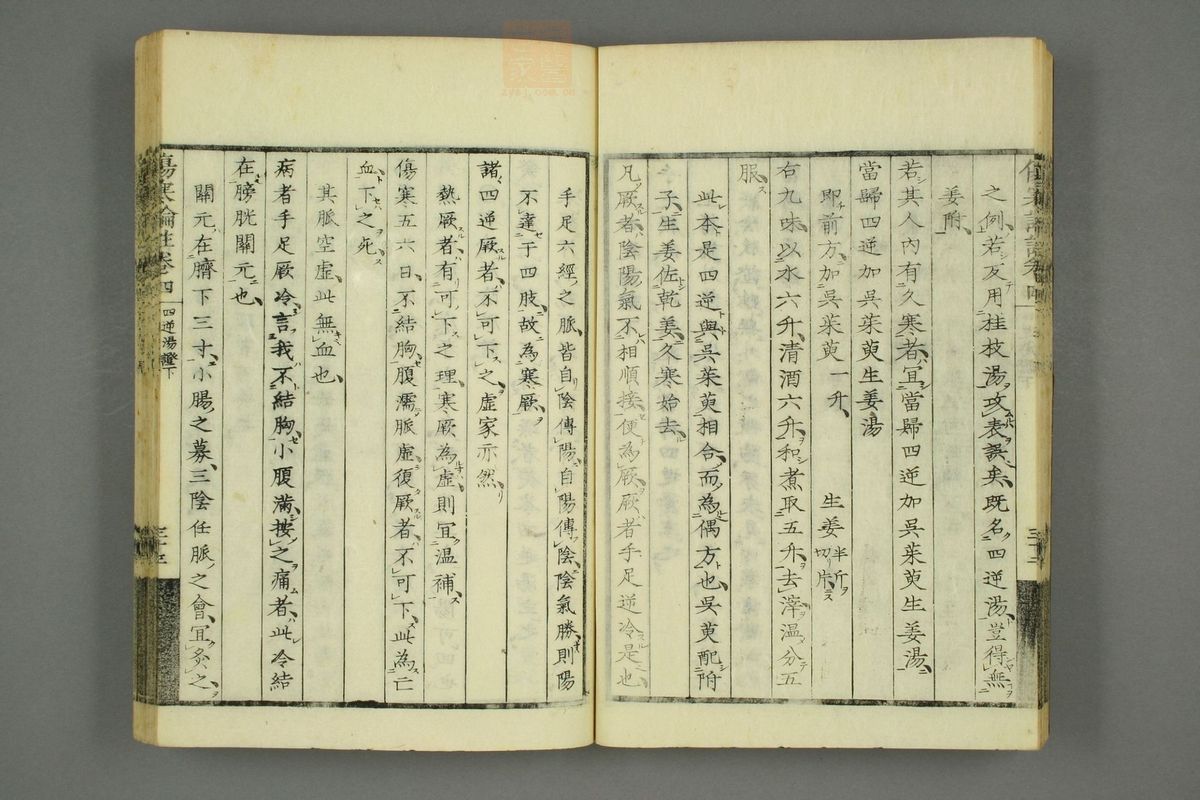 之例若反用桂枝湯攻表誤矣既名四逆湯豈得無
姜附
若其人內有久寒者宜當歸四逆加吳茱萸生姜湯
當歸四逆加吳茱萸生姜湯
即前方加吳茱萸一升 生姜半斤切片
右九味以水六升清酒六升和煮取五升去滓温分五
服
此本是四逆與吳茱萸相合而為偶方也吳萸配附
子生姜佐乾姜久寒始去
凡厥者陰陽氣不相順接便為厥厥者手足逆冷是也
手足六經之脈皆自陰傳陽自陽傳陰陰氣勝則陽
不達于四肢故為寒厥
諸四逆厥者不可下之虛家亦然
熱厥者有可下之理寒厥為虛則宜温補
傷寒五六日不結胸腹濡脈虛復厥者不可下此為亡
血下之死
其脈空虛此無血也
病者手足厥冷言我不結胸小腹滿按之痛者此冷結
在膀胱關元也
關元在臍下三寸小腸之募三陰任脈之會宜灸之
傷寒論註卷四 四逆湯證下 三十三